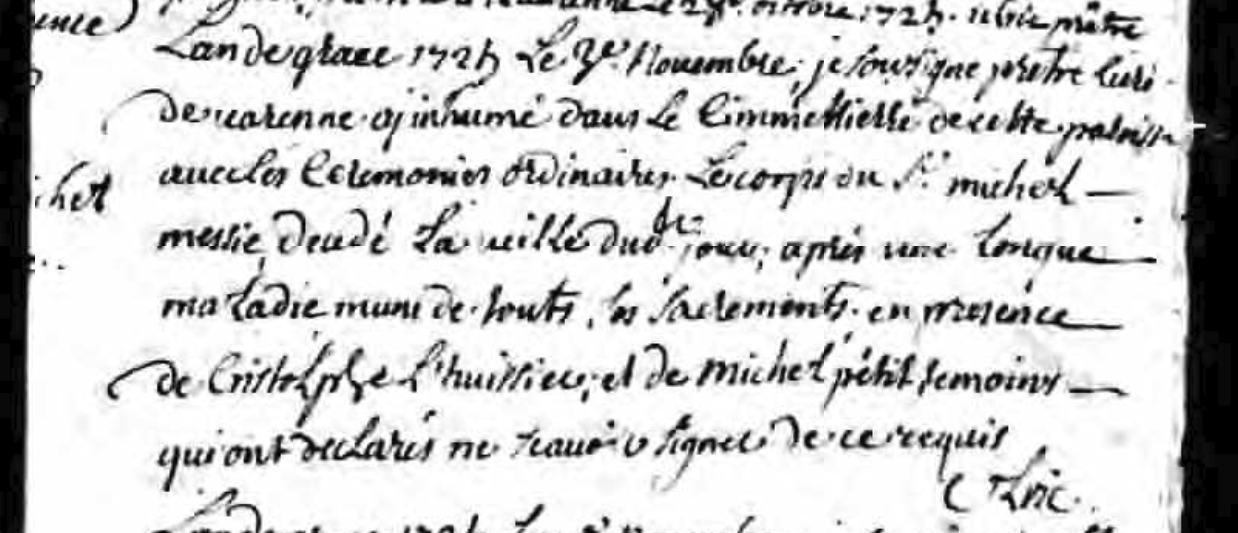 1724
L'an de grace 1724 Le 3e. Novembre, je sousigné prêtre Curé
de varenne aj inhumé dans Le Cimmettierre de cette paroisse
avec les Ceremonies ordinaires Le corps du Sr. michel
messié, decedé La veille dud. jour, aprés une longue
maladie muni de touts les sacrements en presence
de Cristolphe L'huissier, et de michel petit temoins
qui ont declarés ne scavoir signer de ce requis
ichel